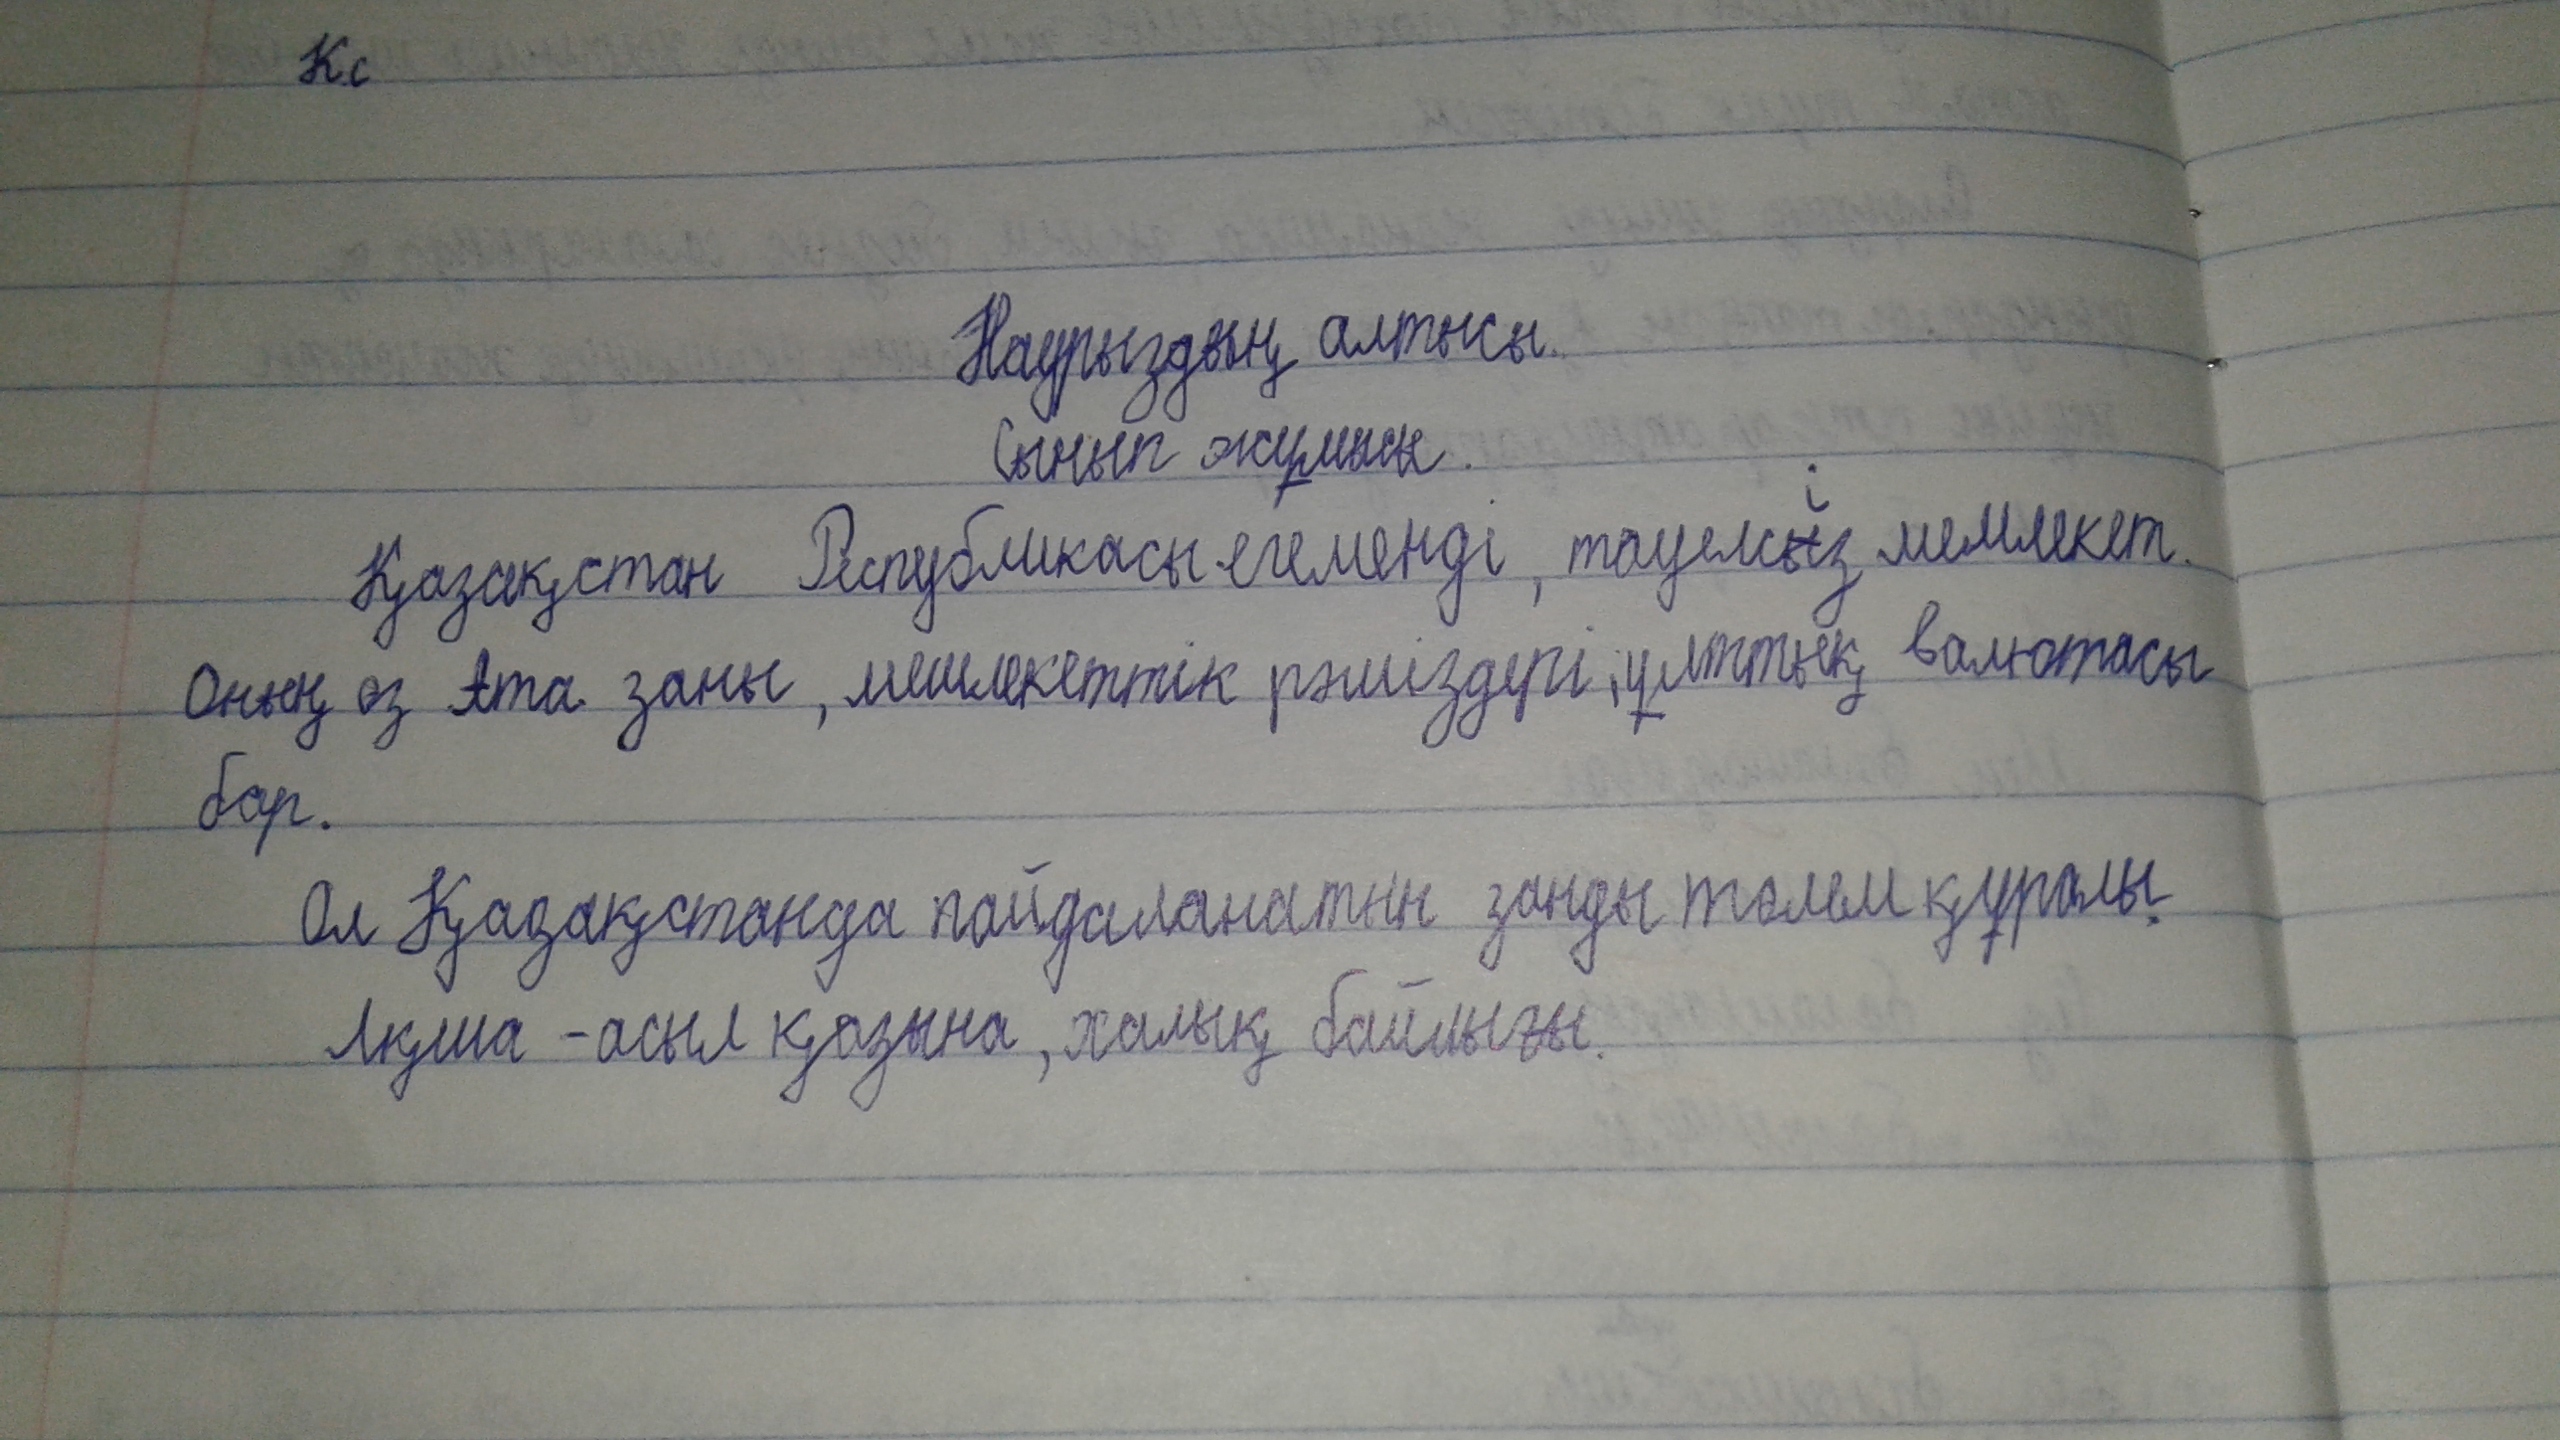 Кс
Наурыздың алтысы.
Сынып жұмысы.
Қазақстан Республикасы егеменді, тәуелсіз мемлекет.
Оның өз Ата заны, мемлекеттік рәміздері, ұлттық валютасы
бар.
Ол Қазақстанда пайдаланатын занды төлем құралы.
Ақша - асыл қазына, халық байлығы.